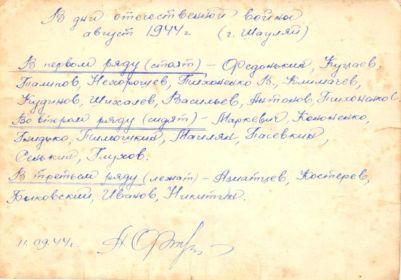 В дни отечественной войны
август 1944 г. (г. Шауляй)
В первом ряду (стоят) - Федонький, Кугаев,
Талипов, Нехорошев, Тихоненко В., Климачев,
Кудинов, Михалев, Васильев, Антонов, Тихоненко.
Во втором ряду (сидят) - Маркевич, Кононенко,
Гладько, Тимощукий, Маилян, Басевкин,
Глухов.
В третьем ряду (лежат) - Азматцев, Костерев,
Быковский, Иванов, Никитин.
11.09.44г.